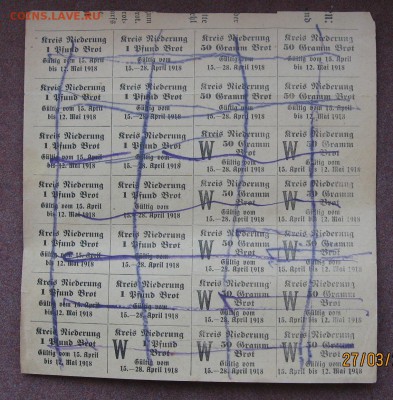 COINS.LAVE.RU
Kreis Niederung
1 Pfund Brot
Gültig vom 15. April
bis 12. Mai 1918
Kreis Niederung
1 Pfund Brot
Gültig vom
15.—28. April 1918
Kreis Niederung
50 Gramm Brot
Gültig vom
15.—28. April 1918
Kreis Niederung
50 Gramm Brot
Gültig vom 15. April
bis 12. Mai 1918
Kreis Niederung
1 Pfund Brot
Gültig vom 15. April
bis 12. Mai 1918
Kreis Niederung
1 Pfund Brot
Gültig vom
15.—28. April 1918
Kreis Niederung
50 Gramm Brot
Gültig vom
15.—28. April 1918
Kreis Niederung
50 Gramm Brot
Gültig vom 15. April
bis 12. Mai 1918
Kreis Niederung
1 Pfund Brot
Gültig vom 15. April
bis 12. Mai 1918
Kreis Niederung
1 Pfund Brot
Gültig vom
15.—28. April 1918
Kreis Niederung
W 50 Gramm
Brot
Gültig vom
15.—28. April 1918
Kreis Niederung
W 50 Gramm
Brot
Gültig vom
15. April 12. Mai 1918
Kreis Niederung
1 Pfund Brot
Gültig vom 15. April
bis 12. Mai 1918
Kreis Niederung
1 Pfund Brot
Gültig vom
15.—28. April 1918
Kreis Niederung
W 50 Gramm
Brot
Gültig vom
15.—28. April 1918
Kreis Niederung
W 50 Gramm
Brot
Gültig vom
15. April 12. Mai 1918
Kreis Niederung
1 Pfund Brot
Gültig vom 15. April
bis 12. Mai 1918
Kreis Niederung
1 Pfund Brot
Gültig vom
15.—28. April 1918
Kreis Niederung
W 50 Gramm
Brot
Gültig vom
15.—28. April 1918
Kreis Niederung
W 50 Gramm
Brot
Gültig vom
15. April 12. Mai 1918
Kreis Niederung
1 Pfund Brot
Gültig vom 15. April
bis 12. Mai 1918
Kreis Niederung
1 Pfund Brot
Gültig vom
15.—28. April 1918
Kreis Niederung
W 50 Gramm
Brot
Gültig vom
15.—28. April 1918
Kreis Niederung
W 50 Gramm
Brot
Gültig vom
15. April 12. Mai 1918
Kreis Niederung
1 Pfund Brot
Gültig vom 15. April
bis 12. Mai 1918
Kreis Niederung
W 1 Pfund
Brot
Gültig vom
15.—28. April 1918
Kreis Niederung
W 50 Gramm
Brot
Gültig vom
15.—28. April 1918
Kreis Niederung
W 50 Gramm
Brot
Gültig vom
15. April 12. Mai 1918
27/03/